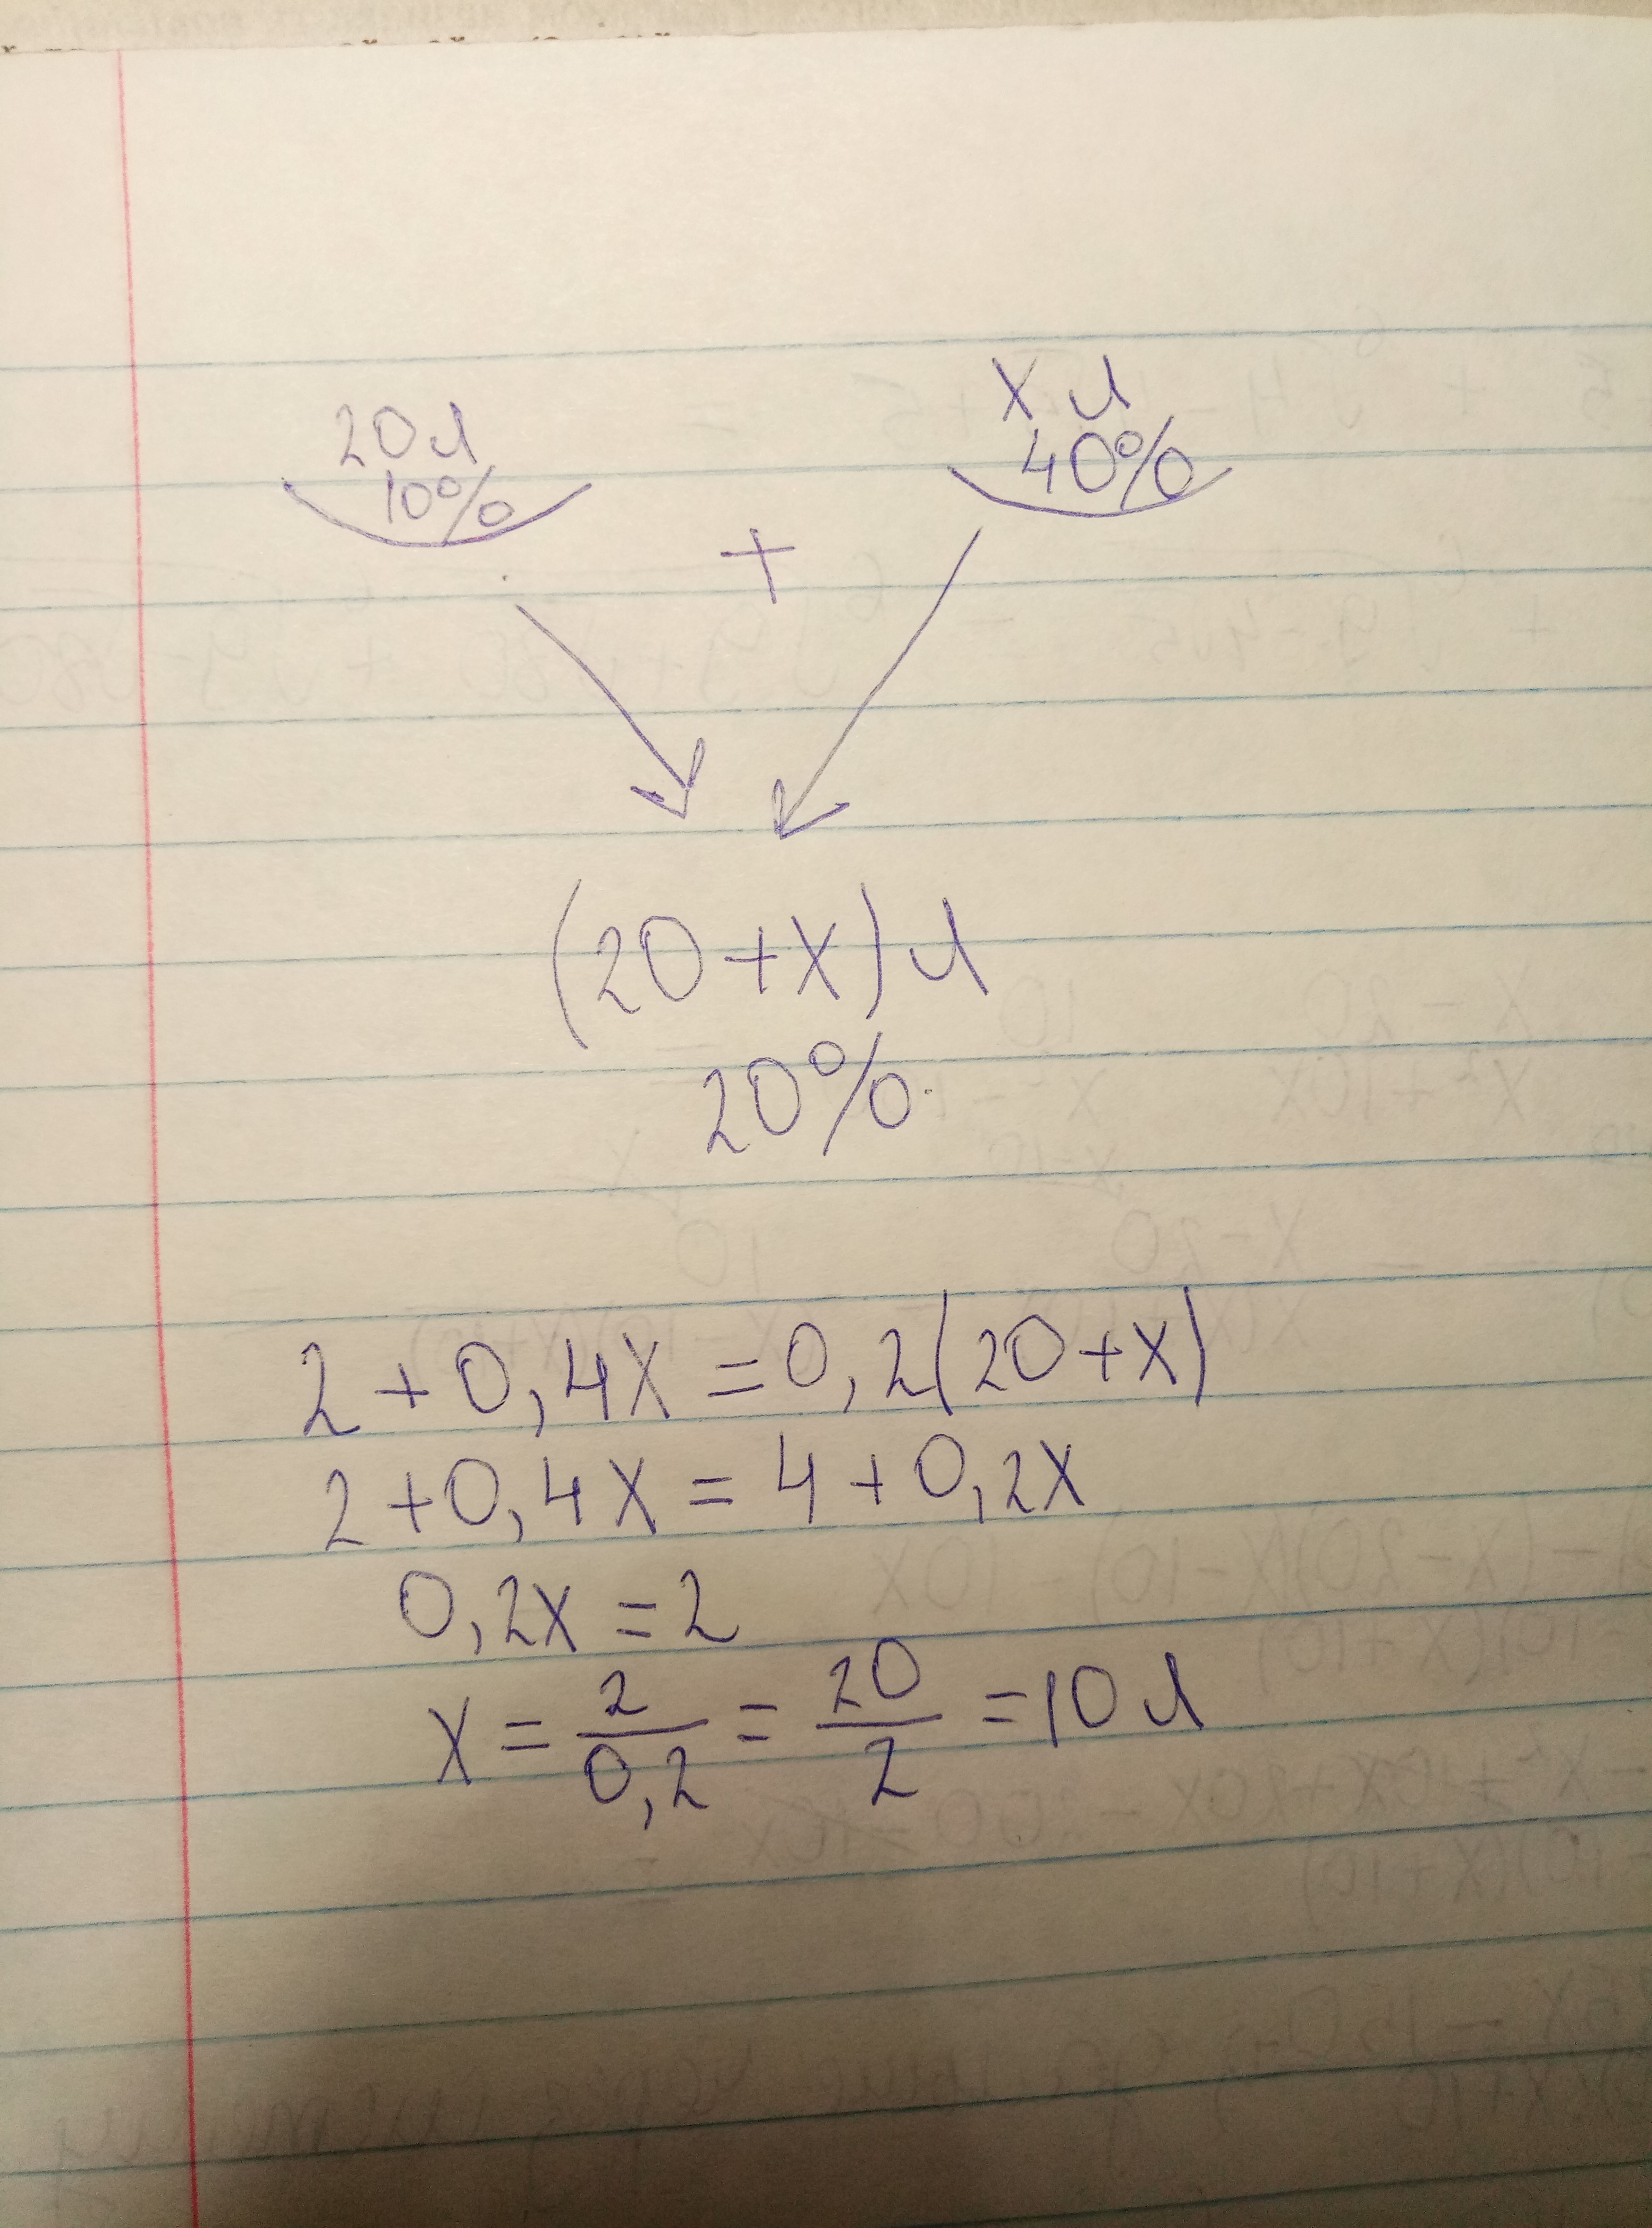 20л
10%
+
x л
40%
(20+x) л
20%
2+0,4x=0,2(20+x)
2+0,4x=4+0,2x
0,2x=2
x=2/0,2=20/2=10 л